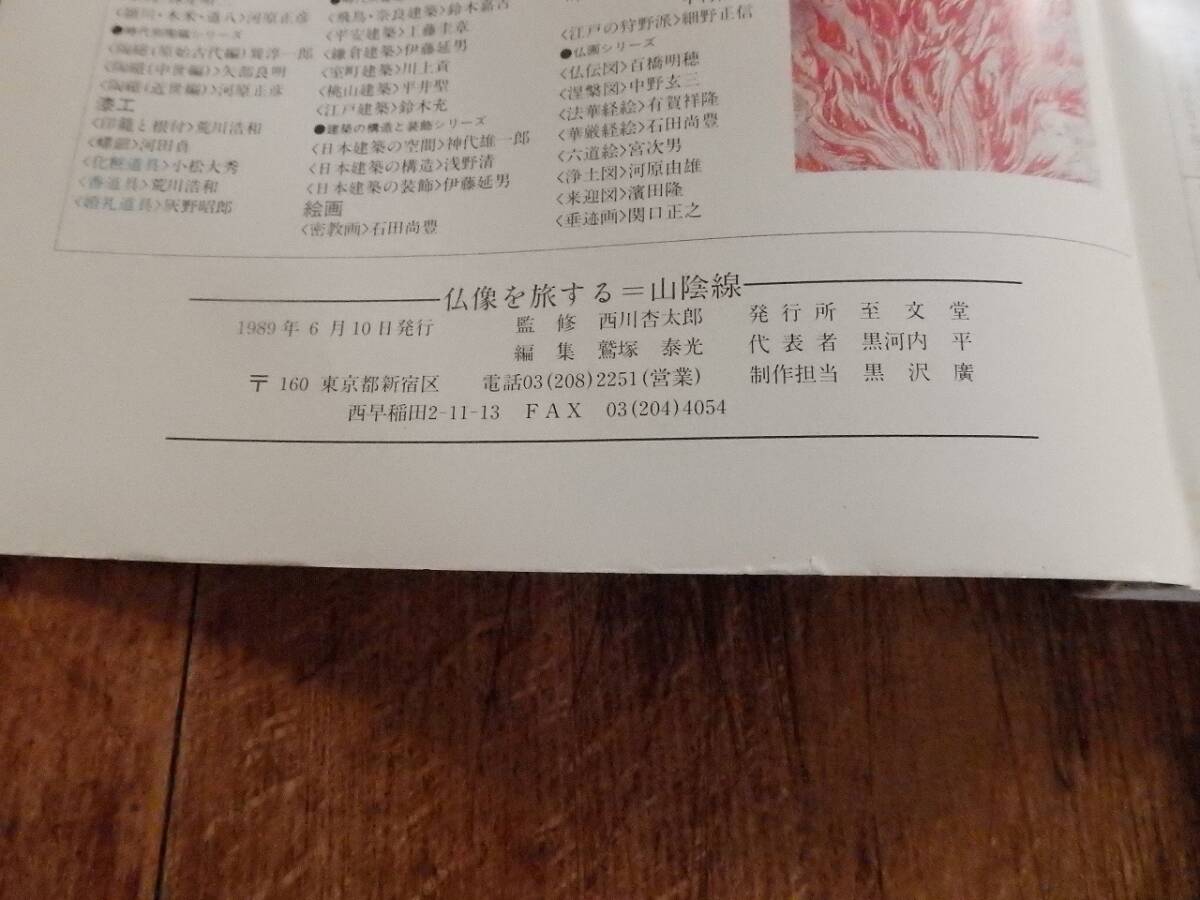 〈頴川・木米・道八〉河原正彦
●時代別陶磁シリーズ
〈陶磁(原始古代編)〉巽淳一郎
〈陶磁(中世編)〉矢部良明
〈陶磁(近世編)〉河原正彦
漆工
〈印籠と根付〉荒川浩和
〈螺鈿〉河田貞
〈化粧道具〉小松大秀
〈香道具〉荒川浩和
〈婚礼道具〉灰野昭郎
〈飛鳥・奈良建築〉鈴木嘉吉
〈平安建築〉工藤圭章
〈鎌倉建築〉伊藤延男
〈室町建築〉川上貢
〈桃山建築〉平井聖
〈江戸建築〉鈴木充
●建築の構造と装飾シリーズ
〈日本建築の空間〉神代雄一郎
〈日本建築の構造〉浅野清
〈日本建築の装飾〉伊藤延男
絵画
〈密教画〉石田尚豊
〈江戸の狩野派〉細野正信
●仏画シリーズ
〈仏伝図〉百橋明穂
〈涅槃図〉中野玄三
〈法華経絵〉有賀祥隆
〈華厳経絵〉石田尚豊
〈六道絵〉宮次男
〈浄土図〉河原由雄
〈来迎図〉濱田隆
〈垂迹画〉関口正之
仏像を旅する=山陰線
1989年6月10日発行 監修 西川杏太郎 発行所 至文堂
編集 鷲塚泰光 代表者 黒河内平
〒160 東京都新宿区 電話03(208)2251(営業) 制作担当 黒沢廣
西早稲田2-11-13 FAX 03(204)4054